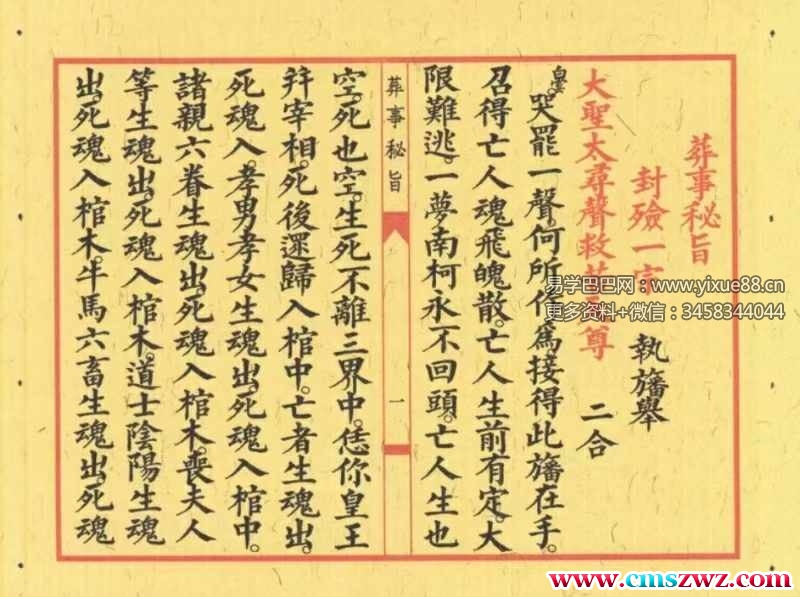 葬事秘旨
封殮一宗
執旛舉
大聖太尋聲救苦天尊
二合
皇
哭罷一聲。何所作爲。接得此旛在手。
召得亡人魂飛魄散。亡人生前有定。大
限難逃。一夢南柯永不回頭。亡人生也
葬事秘旨
一
空。死也空。生死不離三界中。恁你皇王
并宰相。死後還歸入棺中。亡者生魂出。
死魂入。孝男孝女生魂出。死魂入棺中。
諸親六眷生魂出。死魂入棺木。喪夫人
等生魂出。死魂入棺木。道士陰陽生魂
出死魂入棺木。牛馬六畜生魂出。死魂
易学巴巴网：www.yixue88.cn
更多资料+微信：3458344044
www.cmszwz.com